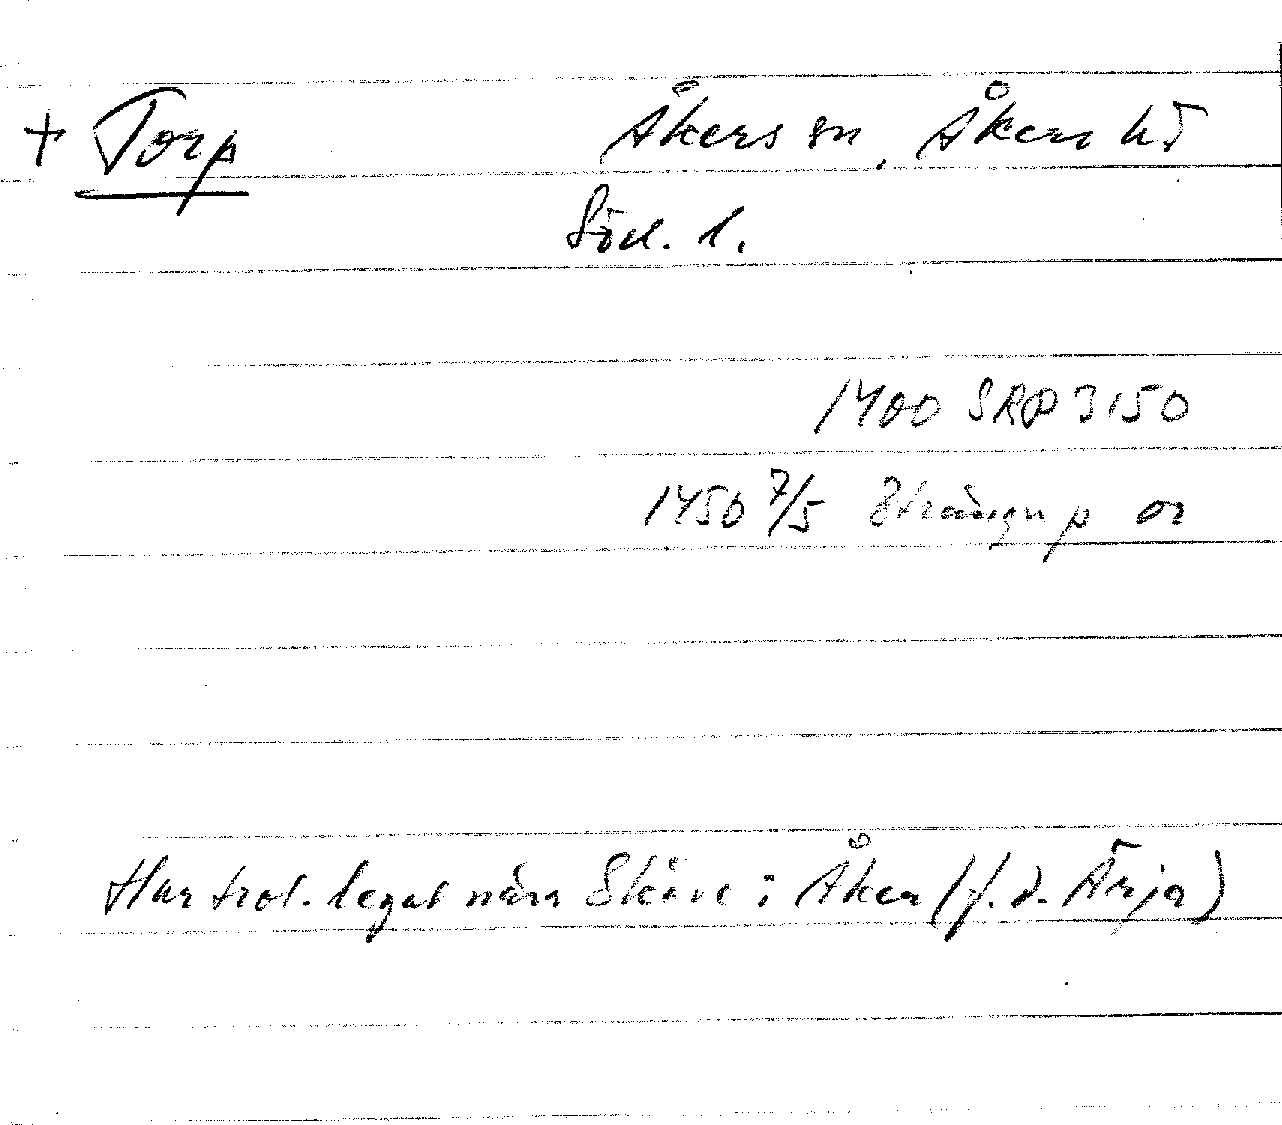 + Torp Åkers sn, Åkers hd
Söd. l.
1400 SRP 3150
1450 7/5 Strängn p or
Har trol. legat nära Skäve i Åker (f. d. Ärja)